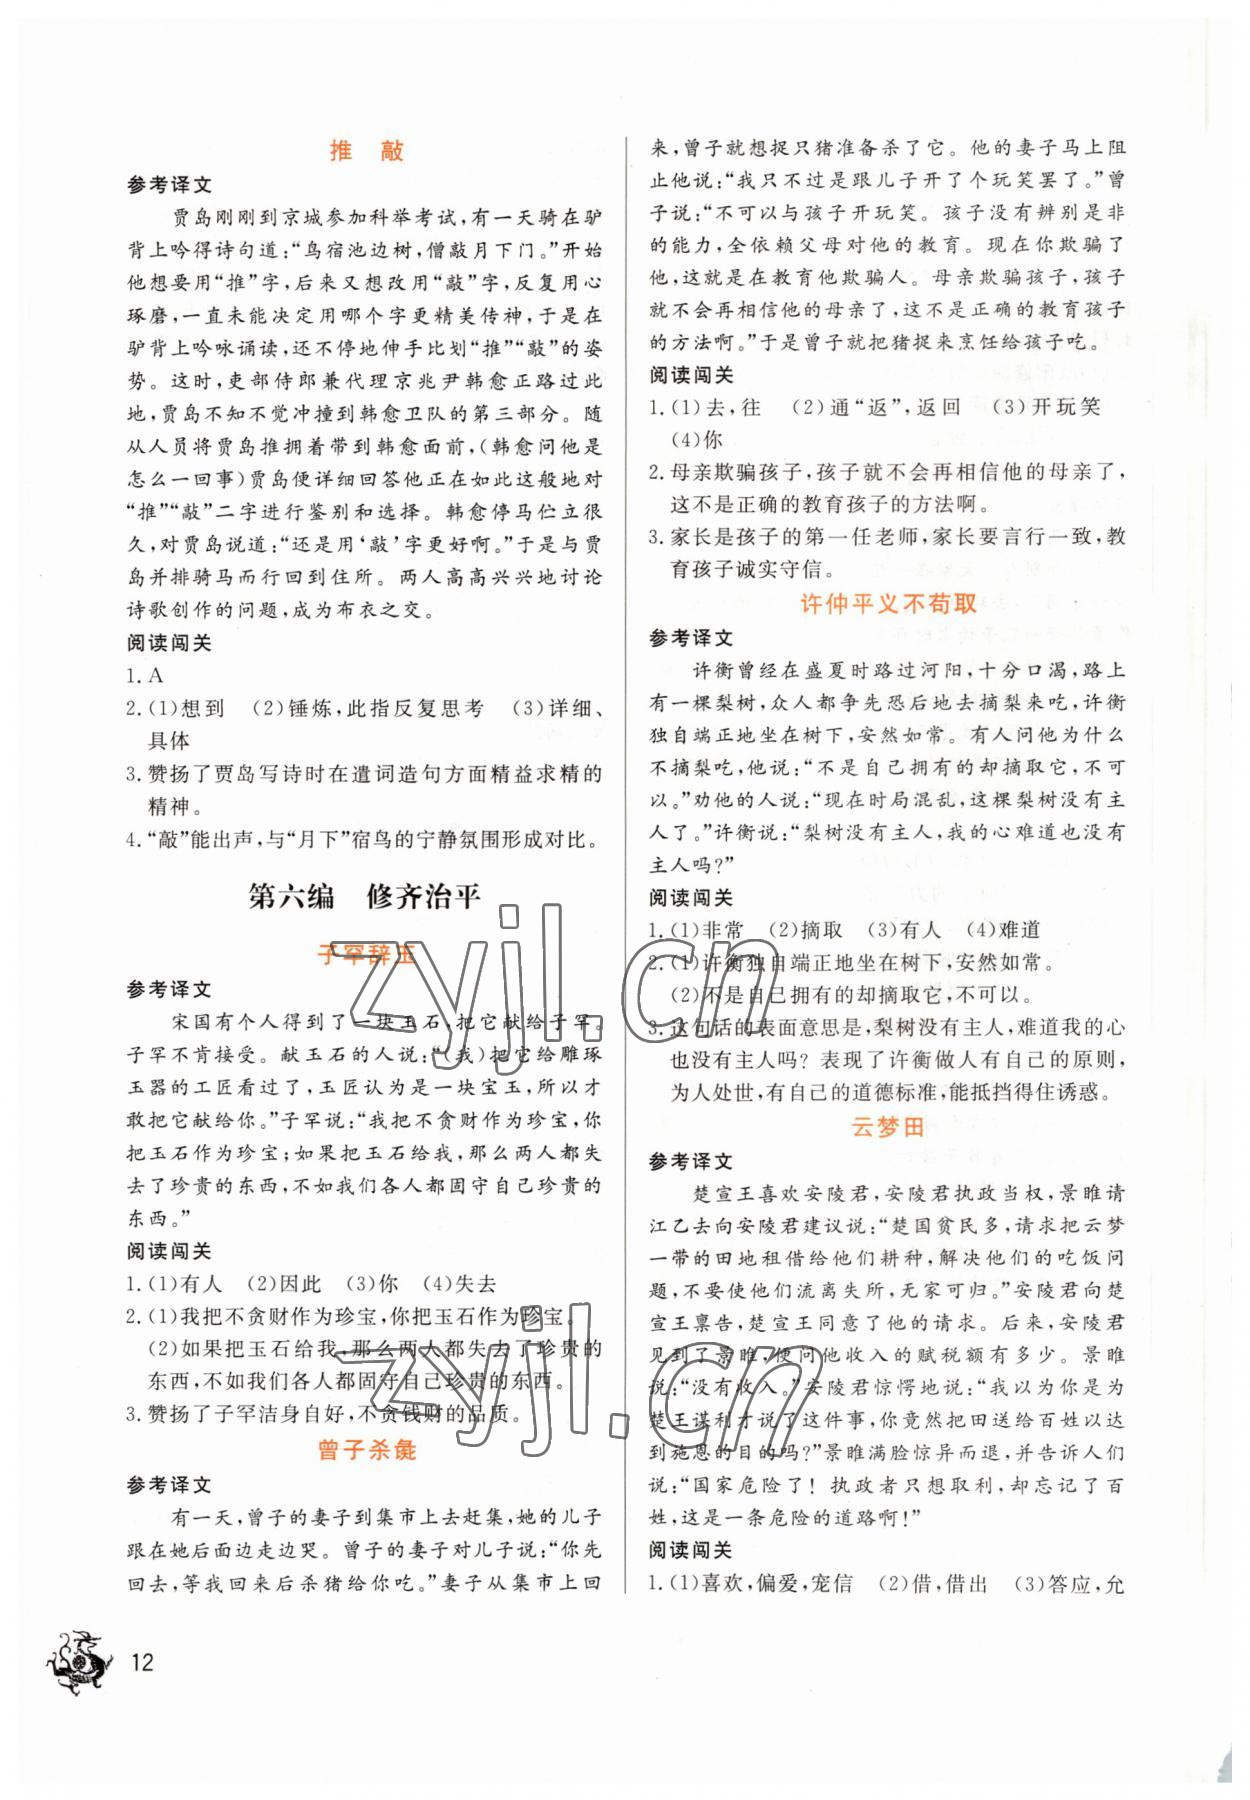 推　敲
参考译文
贾岛刚刚到京城参加科举考试，有一天骑在驴
背上吟得诗句道：“鸟宿池边树，僧敲月下门。”开始
他想要用“推”字，后来又想改用“敲”字，反复用心
琢磨，一直未能决定用哪个字更精美传神，于是在
驴背上吟咏诵读，还不停地伸手比划“推”“敲”的姿
势。这时，吏部侍郎兼代理京兆尹韩愈正路过此
地，贾岛不知不觉冲撞到韩愈卫队的第三部分。随
从人员将贾岛推拥着带到韩愈面前，（韩愈问他是
怎么一回事）贾岛便详细回答他正在如此这般地对
“推”“敲”二字进行鉴别和选择。韩愈停马伫立很
久，对贾岛说道：“还是用‘敲’字更好啊。”于是与贾
岛并排骑马而行回到住所。两人高高兴兴地讨论
诗歌创作的问题，成为布衣之交。
阅读闯关
1. A
2. (1)想到　(2)锤炼，此指反复思考　(3)详细、
具体
3. 赞扬了贾岛写诗时在遣词造句方面精益求精的
精神。
4. “敲”能出声，与“月下”宿鸟的宁静氛围形成对比。
第六编　修齐治平
子罕辞玉
参考译文
宋国有个人得到了一块玉石，把它献给子罕。
子罕不肯接受。献玉石的人说：“（我）把它给雕琢
玉器的工匠看过了，玉匠认为是一块宝玉，所以才
敢把它献给你。”子罕说：“我把不贪财作为珍宝，你
把玉石作为珍宝；如果把玉石给我，那么两人都失
去了珍贵的东西，不如我们各人都固守自己珍贵的
东西。”
阅读闯关
1. (1)有人　(2)因此　(3)你　(4)失去
2. (1)我把不贪财作为珍宝，你把玉石作为珍宝。
(2)如果把玉石给我，那么两人都失去了珍贵的
东西，不如我们各人都固守自己珍贵的东西。
3. 赞扬了子罕洁身自好，不贪钱财的品质。
曾子杀彘
参考译文
有一天，曾子的妻子到集市上去赶集，她的儿子
跟在她后面边走边哭。曾子的妻子对儿子说：“你先
回去，等我回来后杀猪给你吃。”妻子从集市上回
来，曾子就想捉只猪准备杀了它。他的妻子马上阻
止他说：“我只不过是跟儿子开了个玩笑罢了。”曾
子说：“不可以与孩子开玩笑。孩子没有辨别是非
的能力，全依赖父母对他的教育。现在你欺骗了
他，这就是在教育他欺骗人。母亲欺骗孩子，孩子
就不会再相信他的母亲了，这不是正确的教育孩子
的方法啊。”于是曾子就把猪捉来烹饪给孩子吃。
阅读闯关
1. (1)去，往　(2)通“返”，返回　(3)开玩笑
(4)你
2. 母亲欺骗孩子，孩子就不会再相信他的母亲了，
这不是正确的教育孩子的方法啊。
3. 家长是孩子的第一任老师，家长要言行一致，教
育孩子诚实守信。
许仲平义不苟取
参考译文
许衡曾经在盛夏时路过河阳，十分口渴，路上
有一棵梨树，众人都争先恐后地去摘梨来吃，许衡
独自端正地坐在树下，安然如常。有人问他为什么
不摘梨吃，他说：“不是自己拥有的却摘取它，不可
以。”劝他的人说：“现在时局混乱，这棵梨树没有主
人了。”许衡说：“梨树没有主人，我的心难道也没有
主人吗？”
阅读闯关
1. (1)非常　(2)摘取　(3)有人　(4)难道
2. (1)许衡独自端正地坐在树下，安然如常。
(2)不是自己拥有的却摘取它，不可以。
3. 这句话的表面意思是，梨树没有主人，难道我的心
也没有主人吗？表现了许衡做人有自己的原则，
为人处世，有自己的道德标准，能抵挡得住诱惑。
云梦田
参考译文
楚宣王喜欢安陵君，安陵君执政当权，景睢请
江乙去向安陵君建议说：“楚国贫民多，请求把云梦
一带的田地租借给他们耕种，解决他们的吃饭问
题，不要使他们流离失所，无家可归。”安陵君向楚
宣王禀告，楚宣王同意了他的请求。后来，安陵君
见到了景睢，便问他收入的赋税额有多少。景睢
说：“没有收入。”安陵君惊愕地说：“我以为你是为
楚王谋利才说了这件事，你竟然把田送给百姓以达
到施恩的目的吗？”景睢满脸惊异而退，并告诉人们
说：“国家危险了！执政者只想取利，却忘记了百
姓，这是一条危险的道路啊！”
阅读闯关
1. (1)喜欢，偏爱，宠信　(2)借，借出　(3)答应，允
12
zyjl.cn
zyjl.cn